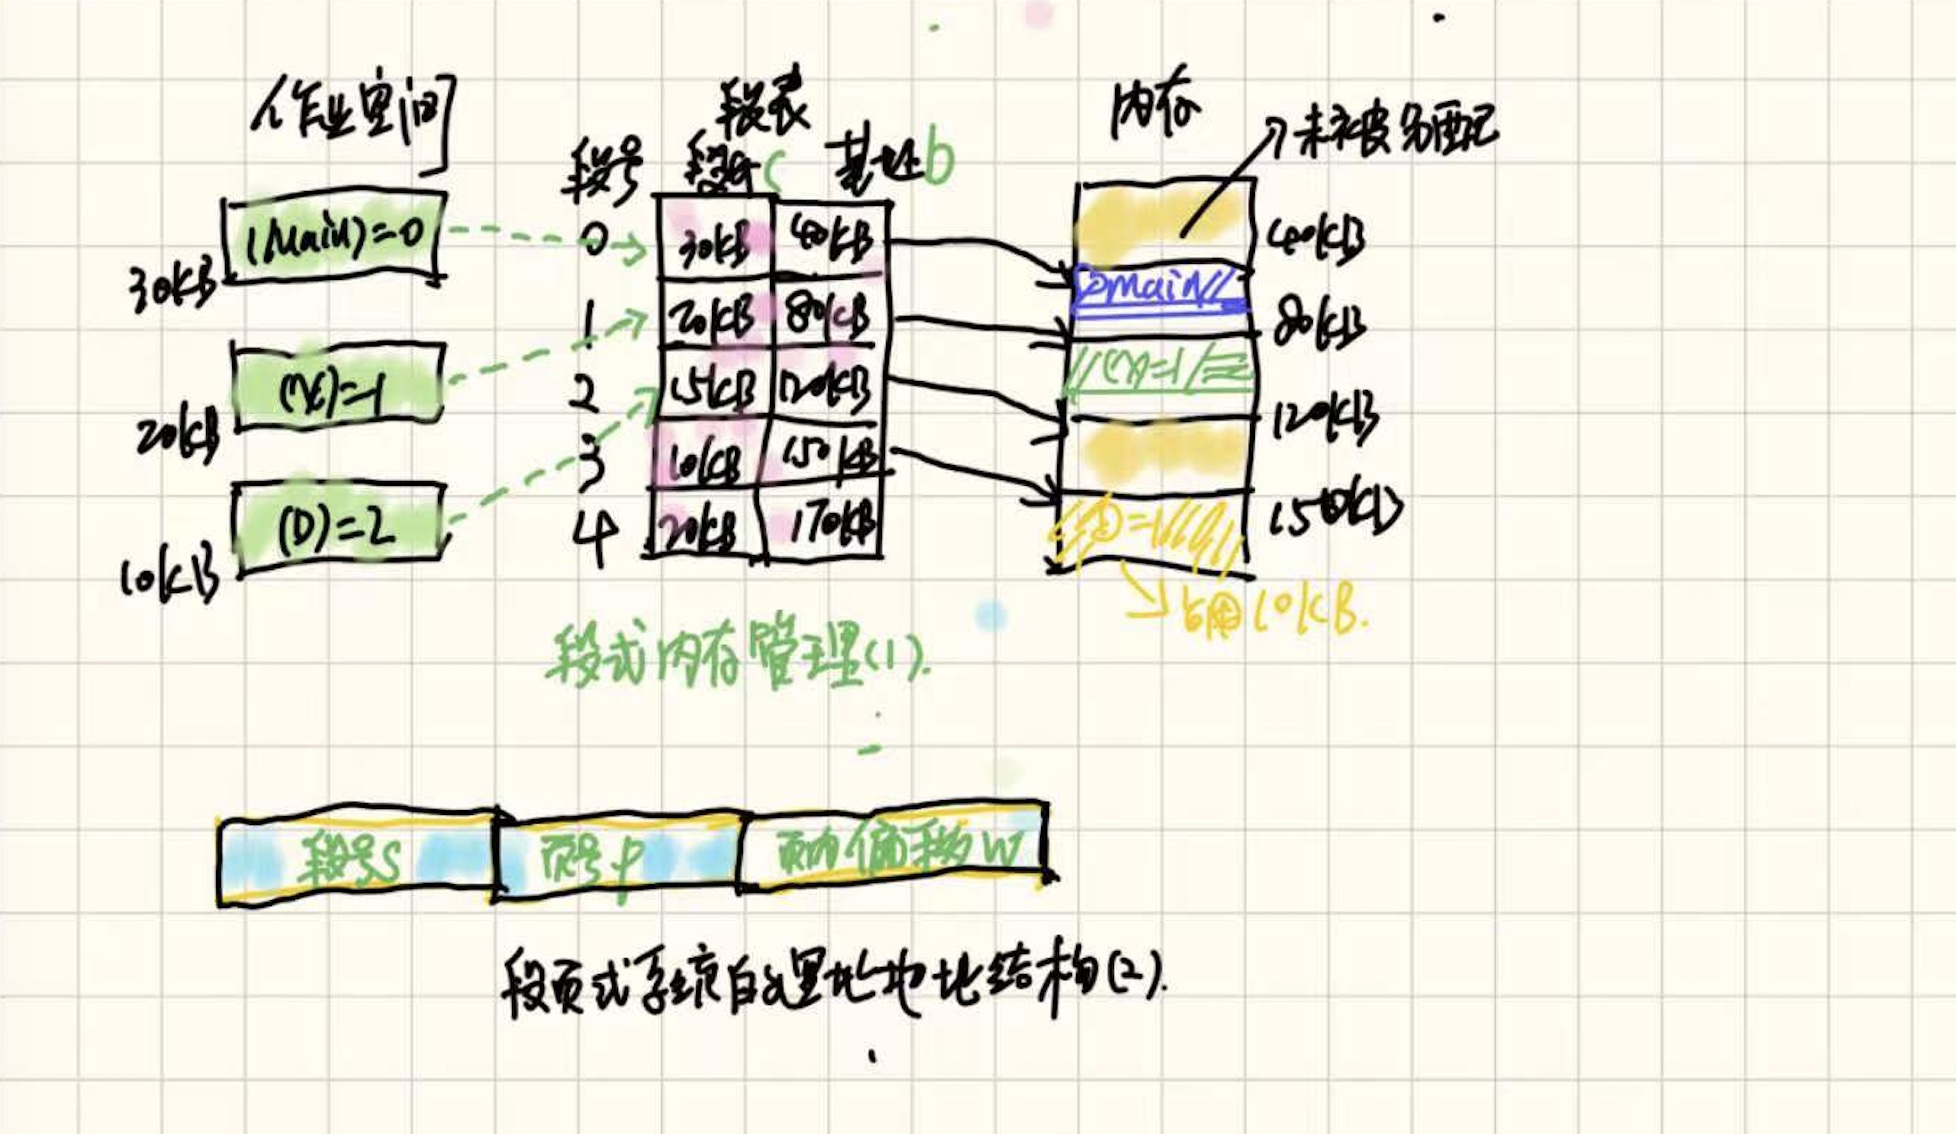 作业空间
(Main)=0
30KB
(X)=1
20KB
(D)=2
10KB
段表
段号 段长 C 基址 b
0 30KB 40KB
1 20KB 80KB
2 15KB 120KB
3 10KB 150KB
4 20KB 170KB
内存
未被分配
40KB
Main
80KB
(X)=1
120KB
150KB
占用10KB.
段式内存管理(1).
段号S 页号P 页内偏移W
段页式系统的逻辑地址结构(2).